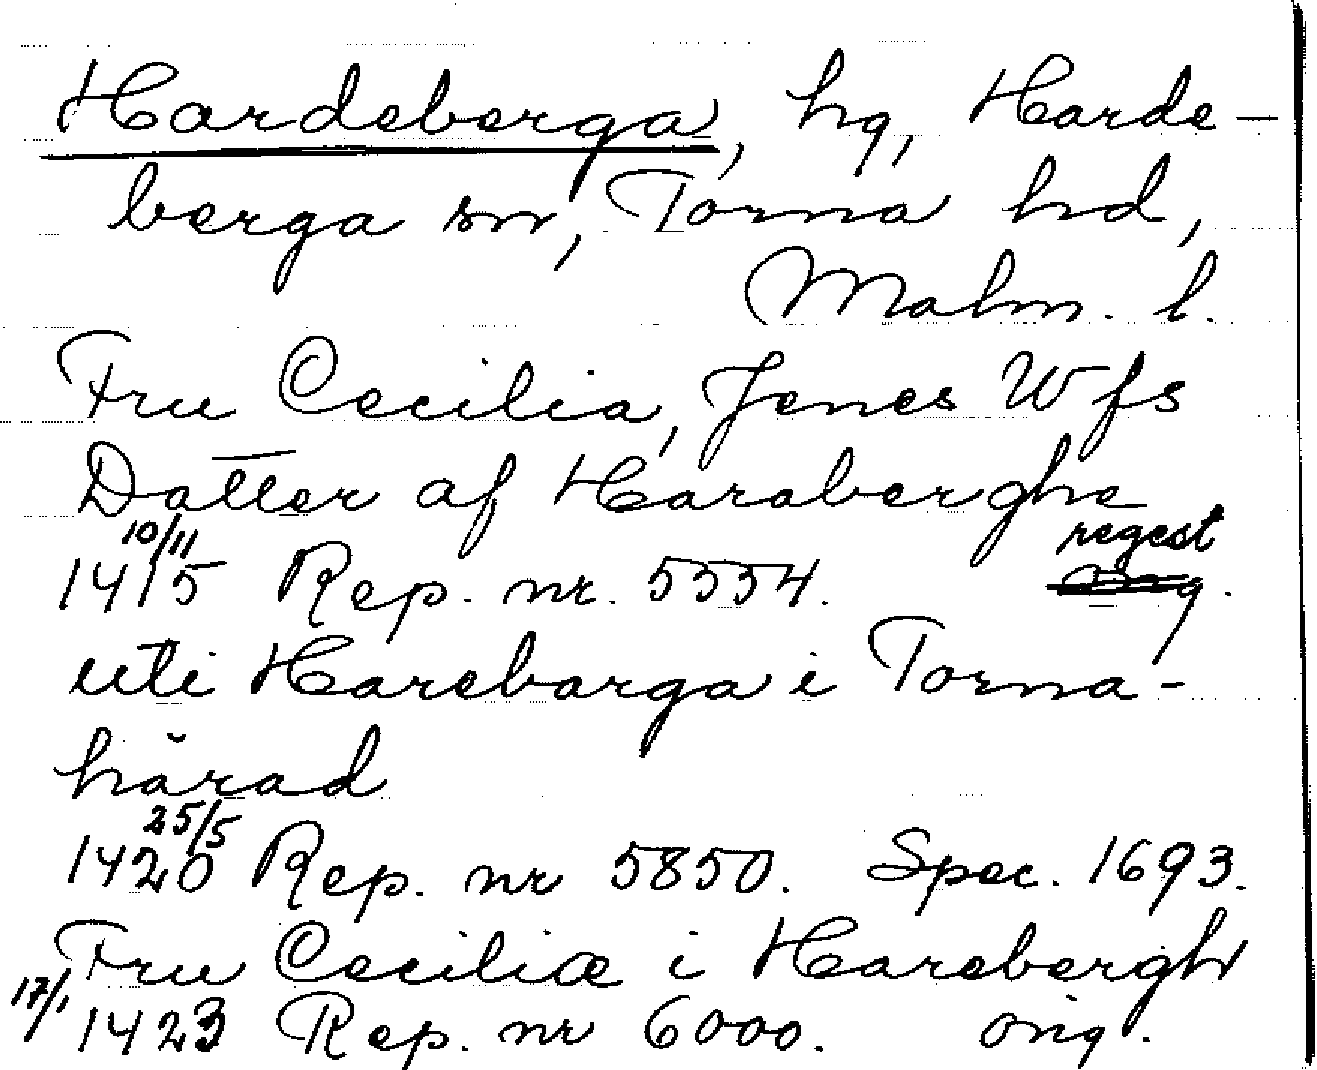 Hardeberga, hg, Harde-
berga sn, Torna hd,
Malm. l.
Fru Cecilia, Jenes Wfs
Datter af Haraberghe
10/11 regest
1415 Rep. nr. 5554.
uti Harebarga i Torna-
härad
25/5
1420 Rep. nr 5850. Spec. 1693.
Fru Ceciliæ i Harebergh
17/1 1423 Rep. nr 6000. orig.